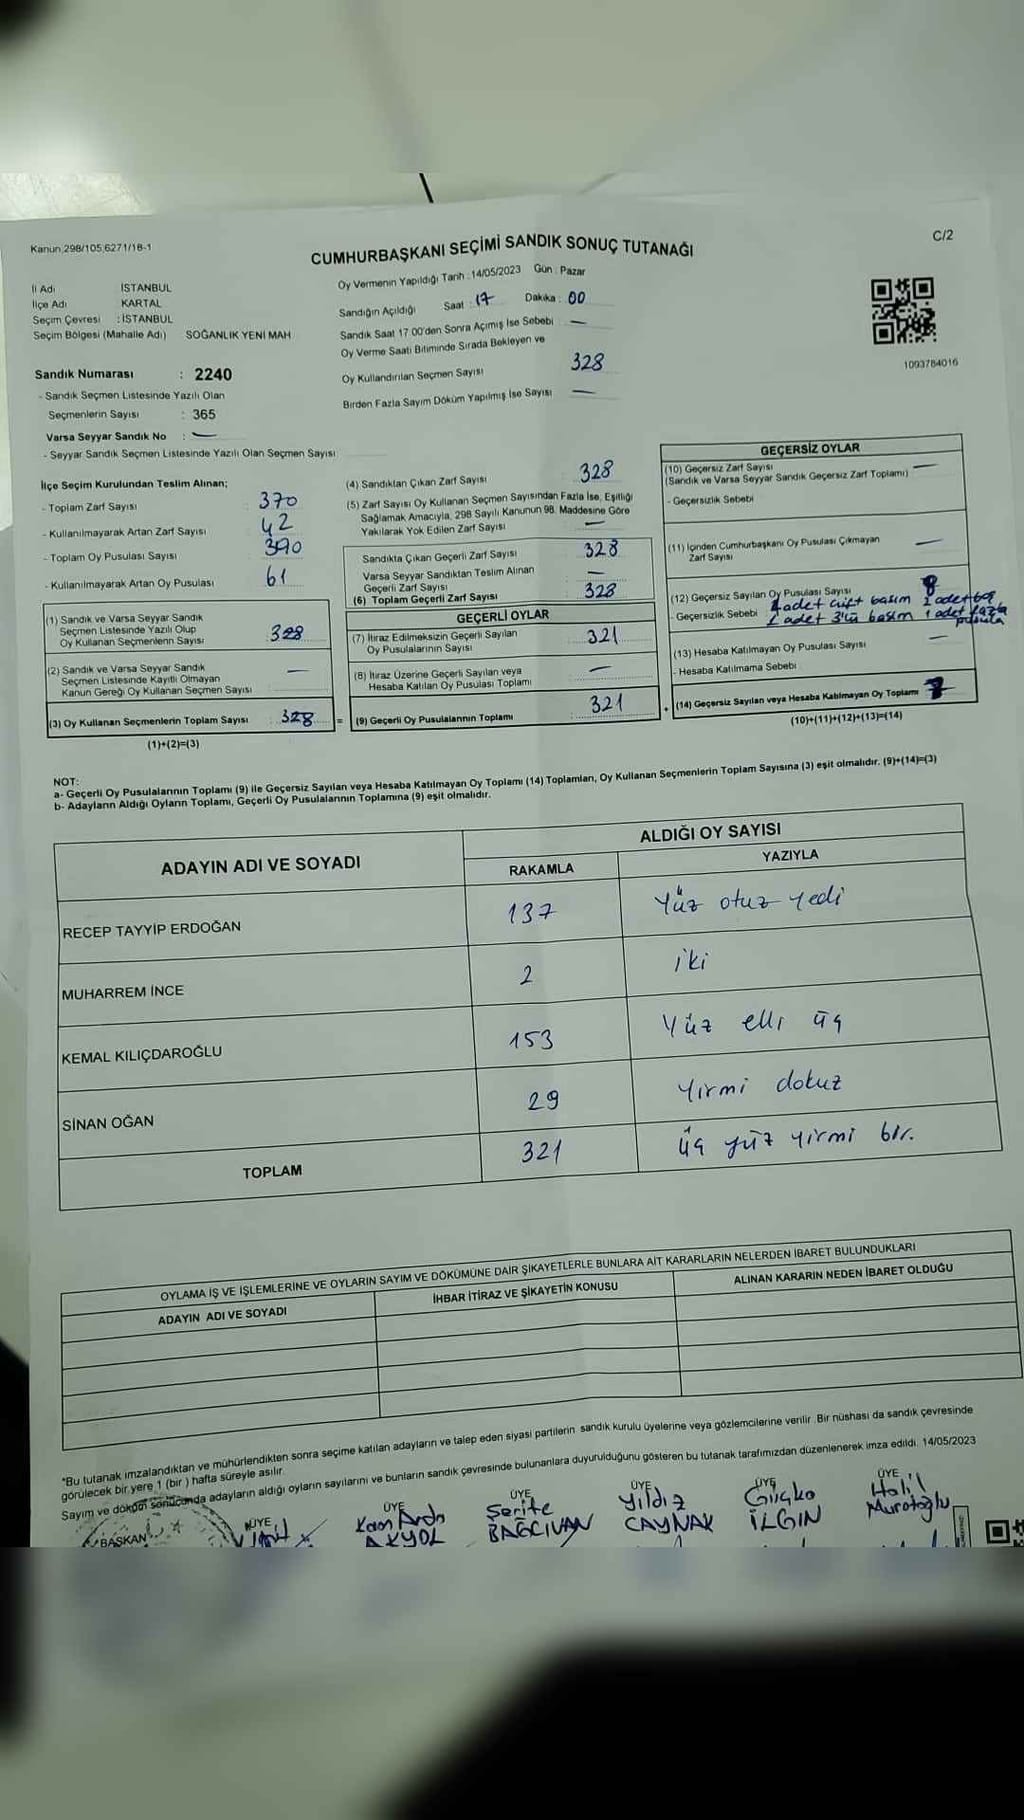 Kanun 298/105,6271/18-1
C/2
CUMHURBAŞKANI SEÇİMİ SANDIK SONUÇ TUTANAĞI
İl Adı İSTANBUL
İlçe Adı KARTAL
Seçim Çevresi : İSTANBUL
Seçim Bölgesi (Mahalle Adı) SOĞANLIK YENİ MAH
Sandık Numarası : 2240
- Sandık Seçmen Listesinde Yazılı Olan
Seçmenlerin Sayısı : 365
Varsa Seyyar Sandık No : —
- Seyyar Sandık Seçmen Listesinde Yazılı Olan Seçmen Sayısı
Oy Vermenin Yapıldığı Tarih : 14/05/2023 Gün : Pazar
Sandığın Açıldığı Saat : 17 Dakika : 00
Sandık Saat 17 00'den Sonra Açımış İse Sebebi —
Oy Verme Saati Bitiminde Sırada Bekleyen ve
Oy Kullandırılan Seçmen Sayısı 328
Birden Fazla Sayım Döküm Yapılmış İse Sayısı —
1093784016
İlçe Seçim Kurulundan Teslim Alınan;
- Toplam Zarf Sayısı 370
- Kullanılmayarak Artan Zarf Sayısı 42
- Toplam Oy Pusulası Sayısı 390
- Kullanılmayarak Artan Oy Pusulası 61
(1) Sandık ve Varsa Seyyar Sandık
Seçmen Listesinde Yazılı Olup
Oy Kullanan Seçmenlerin Sayısı 328
(2) Sandık ve Varsa Seyyar Sandık
Seçmen Listesinde Kayıtlı Olmayan
Kanun Gereği Oy Kullanan Seçmen Sayısı —
(3) Oy Kullanan Seçmenlerin Toplam Sayısı 328 =
(1)+(2)=(3)
(4) Sandıktan Çıkan Zarf Sayısı 328
(5) Zarf Sayısı Oy Kullanan Seçmen Sayısından Fazla İse, Eşitliği
Sağlamak Amacıyla, 298 Sayılı Kanunun 98. Maddesine Göre
Yakılarak Yok Edilen Zarf Sayısı —
Sandıkta Çıkan Geçerli Zarf Sayısı 328
Varsa Seyyar Sandıktan Teslim Alınan
Geçerli Zarf Sayısı —
(6) Toplam Geçerli Zarf Sayısı 328
GEÇERLİ OYLAR
(7) İtiraz Edilmeksizin Geçerli Sayılan
Oy Pusulalarının Sayısı 321
(8) İtiraz Üzerine Geçerli Sayılan veya
Hesaba Katılan Oy Pusulası Toplamı —
(9) Geçerli Oy Pusulalarının Toplamı 321 +
GEÇERSİZ OYLAR
(10) Geçersiz Zarf Sayısı —
(Sandık ve Varsa Seyyar Sandık Geçersiz Zarf Toplamı)
- Geçersizlik Sebebi
(11) İçinden Cumhurbaşkanı Oy Pusulası Çıkmayan —
Zarf Sayısı
(12) Geçersiz Sayılan Oy Pusulası Sayısı
- Geçersizlik Sebebi adet çift basım 2 adet boş
adet 3'lü basım 1 adet fazla
pusula
(13) Hesaba Katılmayan Oy Pusulası Sayısı —
- Hesaba Katılmama Sebebi
(14) Geçersiz Sayılan veya Hesaba Katılmayan Oy Toplamı 7
(10)+(11)+(12)+(13)=(14)
NOT:
a- Geçerli Oy Pusulalarının Toplamı (9) ile Geçersiz Sayılan veya Hesaba Katılmayan Oy Toplamı (14) Toplamları, Oy Kullanan Seçmenlerin Toplam Sayısına (3) eşit olmalıdır. (9)+(14)=(3)
b- Adayların Aldığı Oyların Toplamı, Geçerli Oy Pusulalarının Toplamına (9) eşit olmalıdır.
ADAYIN ADI VE SOYADI
ALDIĞI OY SAYISI
RAKAMLA YAZIYLA
RECEP TAYYİP ERDOĞAN 137 Yüz otuz yedi
MUHARREM İNCE 2 iki
KEMAL KILIÇDAROĞLU 153 Yüz elli üç
SİNAN OĞAN 29 Yirmi dokuz
TOPLAM 321 üç yüz yirmi bir.
OYLAMA İŞ VE İŞLEMLERİNE VE OYLARIN SAYIM VE DÖKÜMÜNE DAİR ŞİKAYETLERLE BUNLARA AİT KARARLARIN NELERDEN İBARET BULUNDUKLARI
ADAYIN ADI VE SOYADI İHBAR İTİRAZ VE ŞİKAYETİN KONUSU ALINAN KARARIN NEDEN İBARET OLDUĞU
"Bu tutanak imzalandıktan ve mühürlendikten sonra seçime katılan adayların ve talep eden siyasi partilerin sandık kurulu üyelerine veya gözlemcilerine verilir. Bir nüshası da sandık çevresinde
görülecek bir yere 1 (bir) hafta süreyle asılır.
Sayım ve döküm sonucunda adayların aldığı oyların sayılarını ve bunların sandık çevresinde bulunanlara duyurulduğunu gösteren bu tutanak tarafımızdan düzenlenerek imza edildi. 14/05/2023
BAŞKAN ÜYE ÜYE ÜYE ÜYE ÜYE ÜYE
AKYOL
Şerife BAĞCIVAN
Yıldız CAYNAK
İLGIN
Halil Muratoğlu